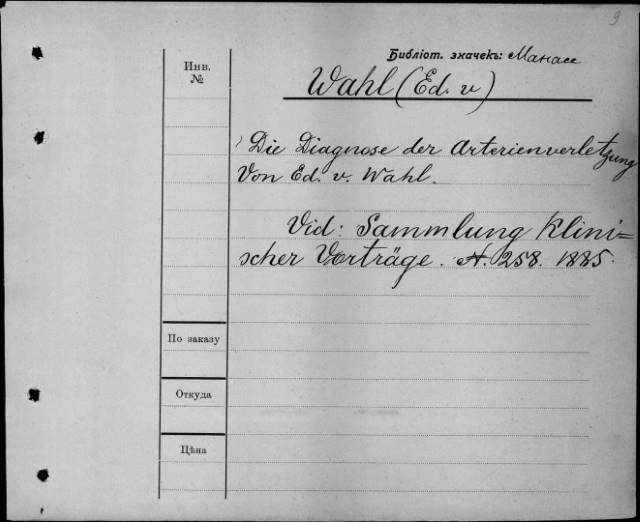 9
Библіот. значекъ: Манасс
Инв.
№
Wahl (Ed. v)
Die Diagnose der Arterienverletzung
Von Ed. v. Wahl.
Vid: Sammlung Klini=
scher Vorträge. N. 258. 1885.
По заказу
Откуда
Цѣна